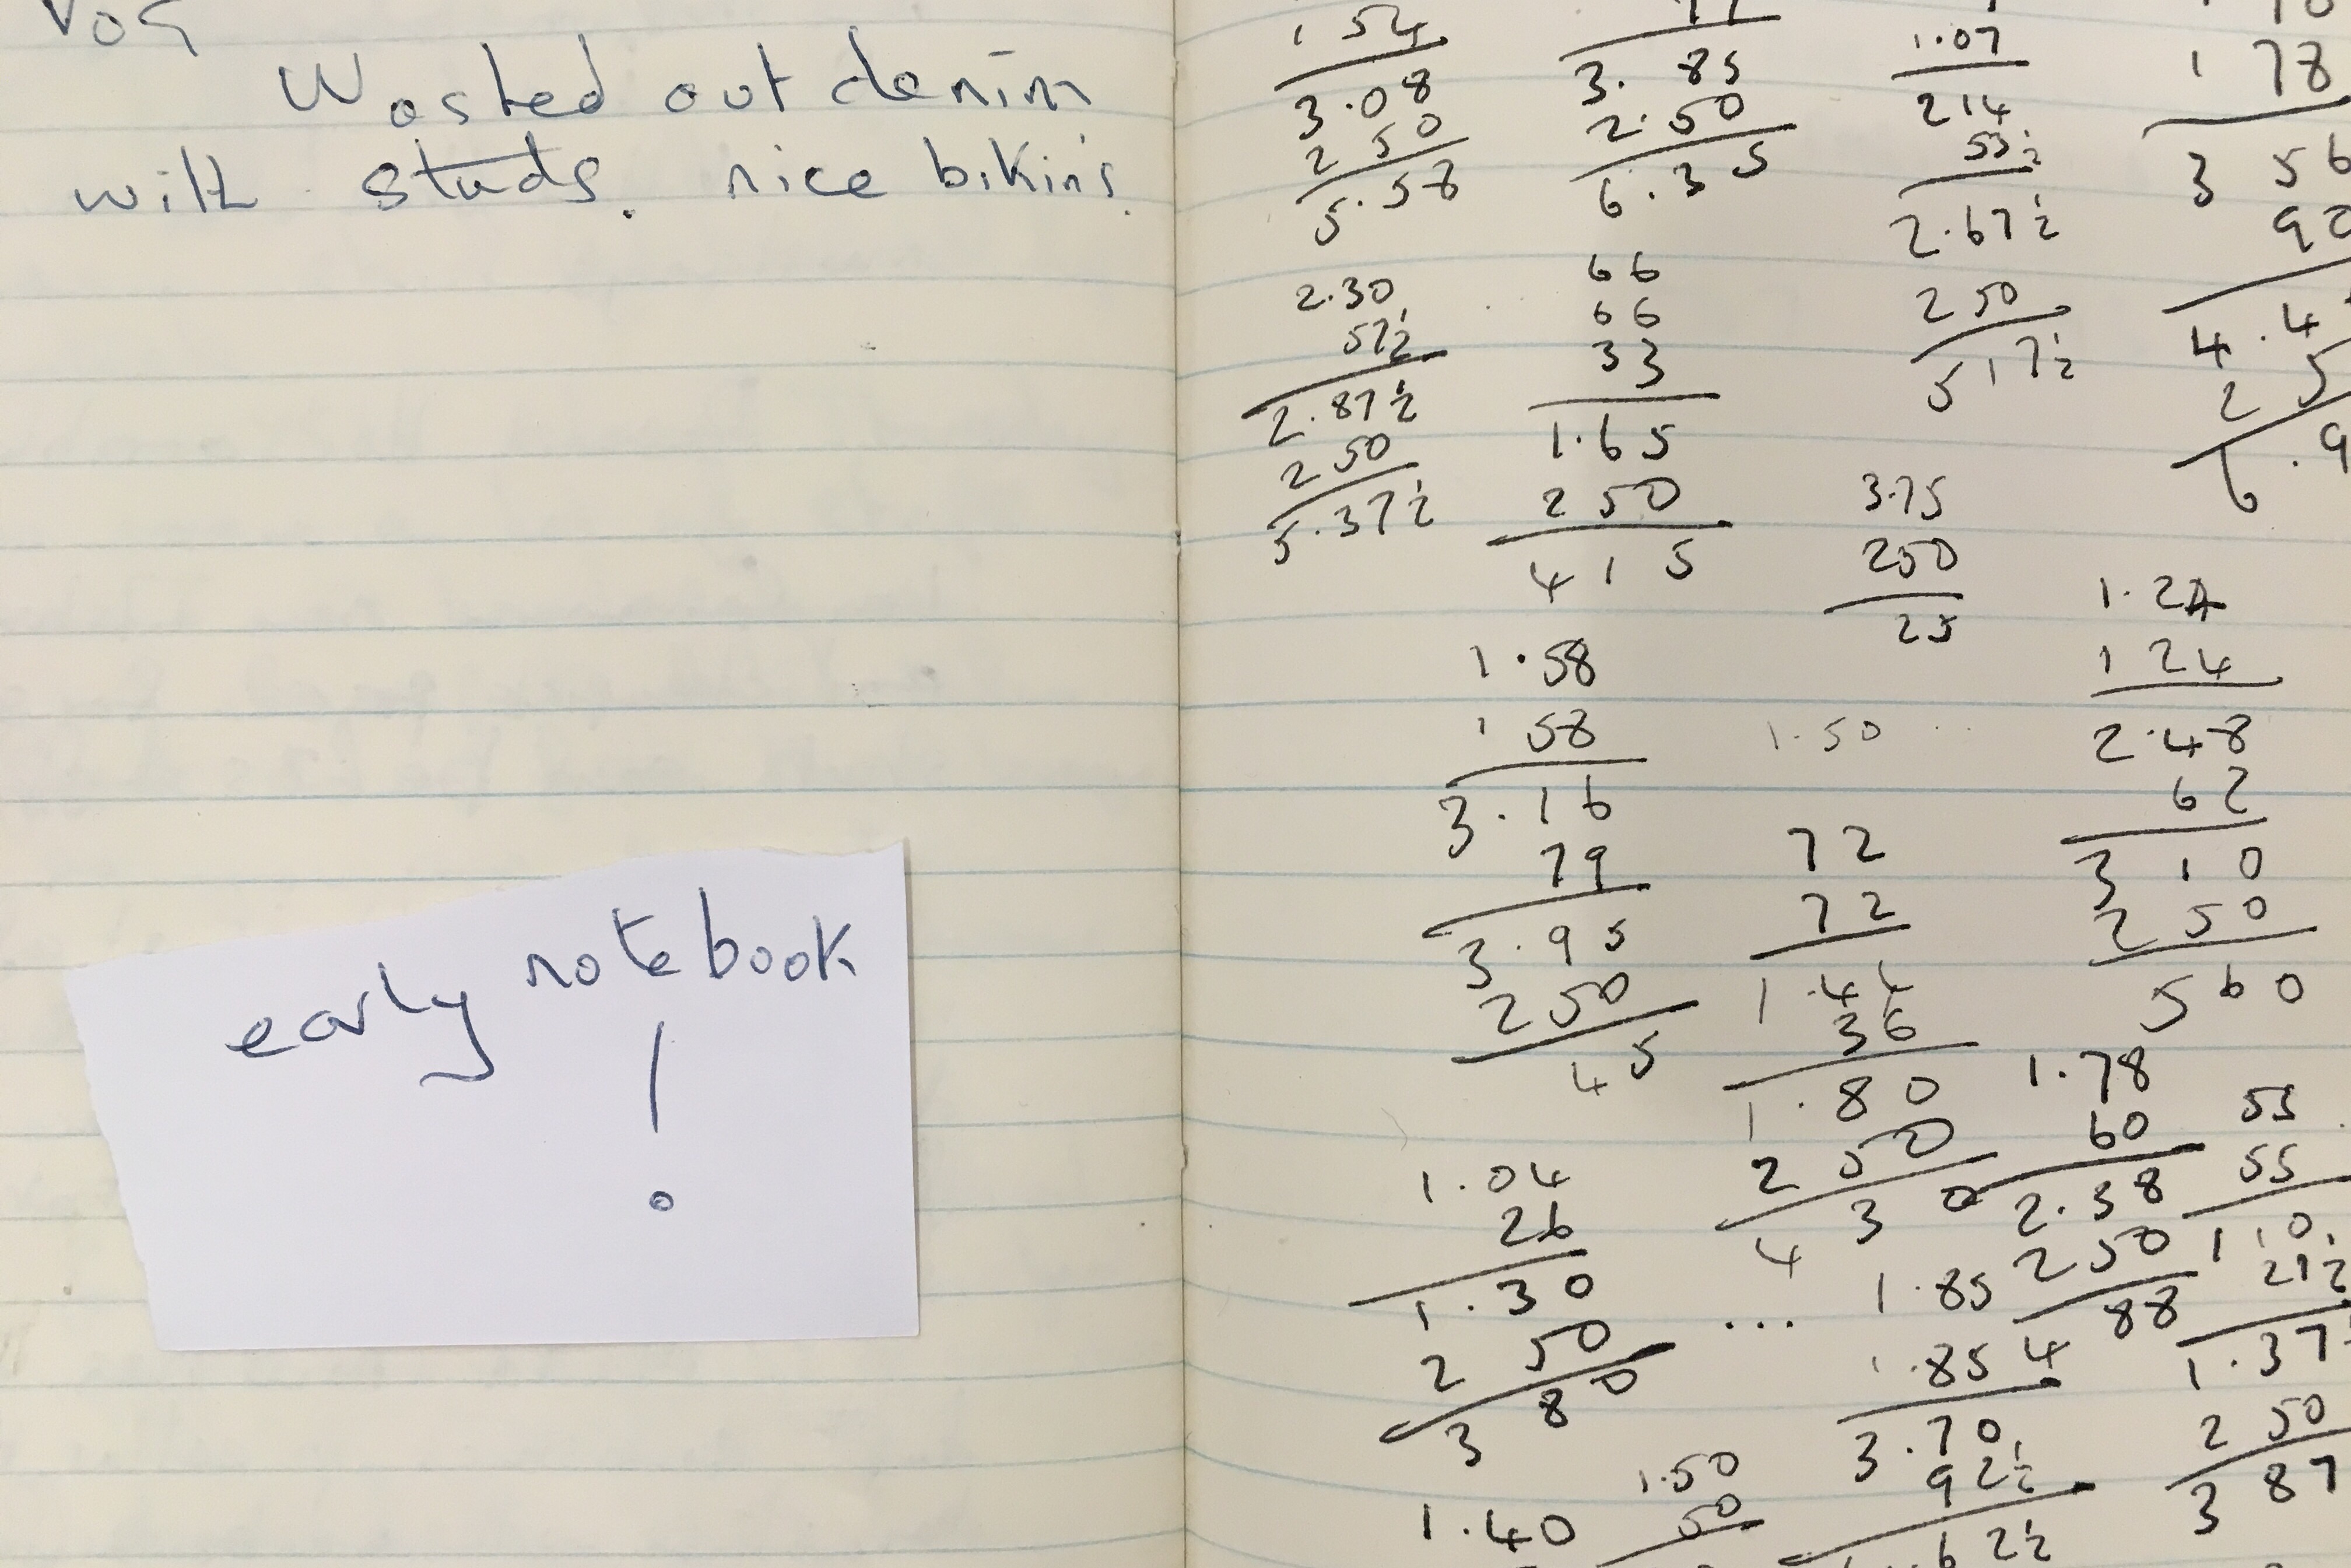 Wasted out denim
with studs. nice bikinis.
early notebook
!
1 54
3.08
2 50
5.58
2.30
57½
2.87½
2 50
5.37½
3.85
2.50
6.35
66
66
33
1.65
2 50
4 1 5
1.07
214
53½
2.67½
2 50
5 17½
3.75
250
25
1 78
3 56
90
4.4
2 5
6.9
1.58
1 58
3.16
79
3.95
2 50
45
1.50
72
72
1.44
36
1.80
2 50
4 3 0
1.24
1 24
2.48
62
3 10
2 50
5 60
1.04
26
1.30
2 50
3 80
...
1.78
60
2.38
2 50
4 88
55
55
1 10
21½
1.37½
2 50
3 87
1.85
1.85
3.70
92½
62½
1.50
50
1.40